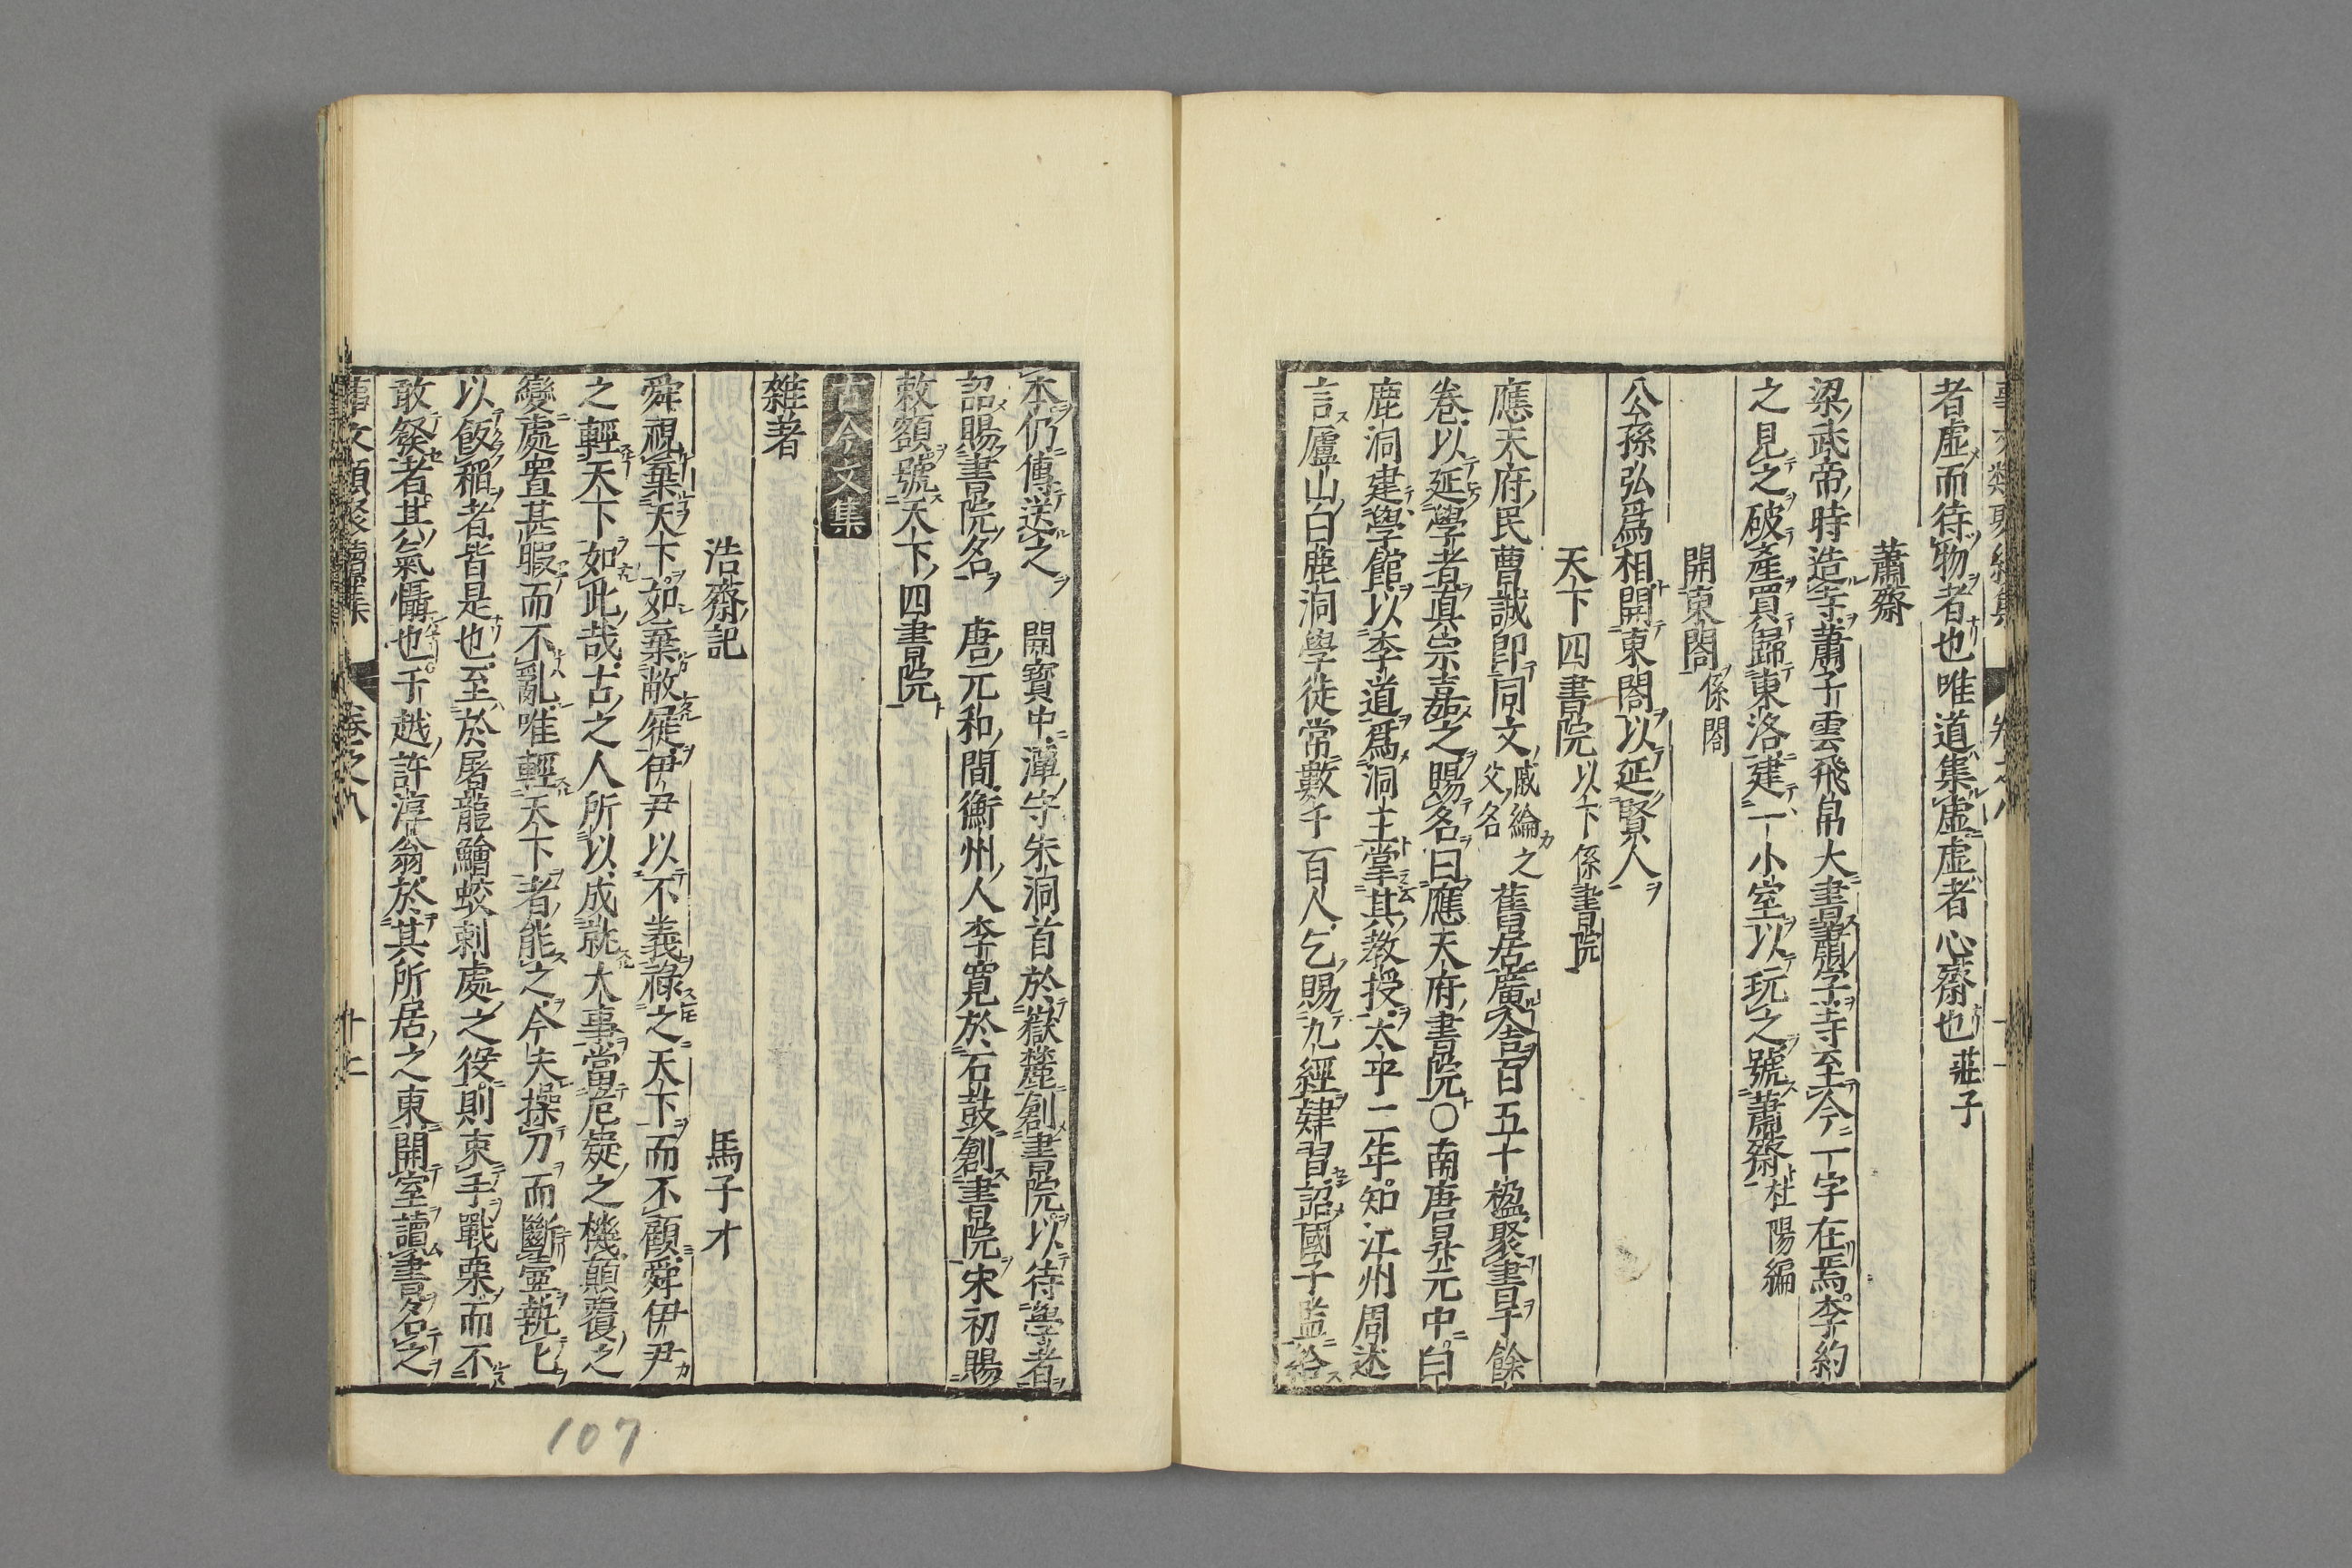 者虛而待物者也唯道集虛虛者心齋也莊子
蕭齋
梁武帝時造寺蕭子雲飛帛大書蕭字寺至今一字在焉李約
之見之破產買歸東洛建一小室以玩之號蕭齋杜陽編
開東閤係閤
公孫弘爲相開東閤以延賢人
天下四書院以下係書院
應天府民曹誠即同文戚綸之父名舊居廣舍百五十楹聚書千餘
卷以延學者眞宗嘉之賜名曰應天府書院〇南唐昇元中白
鹿洞建學館以李道爲洞主掌其教授太平二年知江州周述
言廬山白鹿洞學徒常數千百人乞賜九經肄習詔國子監給
本仍傳送之 開寶中潭守朱洞首於嶽麓創書院以待學者
詔賜書院名 唐元和間衡州人李寬於石鼓創書院宋初賜
敕額號天下四書院
古今文集
雜著
浩齋記 馬子才
舜視棄天下如棄敝屣伊尹以不義祿之天下而不顧舜伊尹
之輕天下如此哉古之人所以成就大事當危疑之機顛覆之
變處置甚暇而不亂唯輕天下者能之今夫操刀而斷壷執匕
以飯稻者皆是也至於屠龍鱠蛟刺處之役則束手戰栗而不
敢發者其氣懾也于越許淳翁於其所居之東開室讀書名之
事文類聚續集 卷之八 十二
107